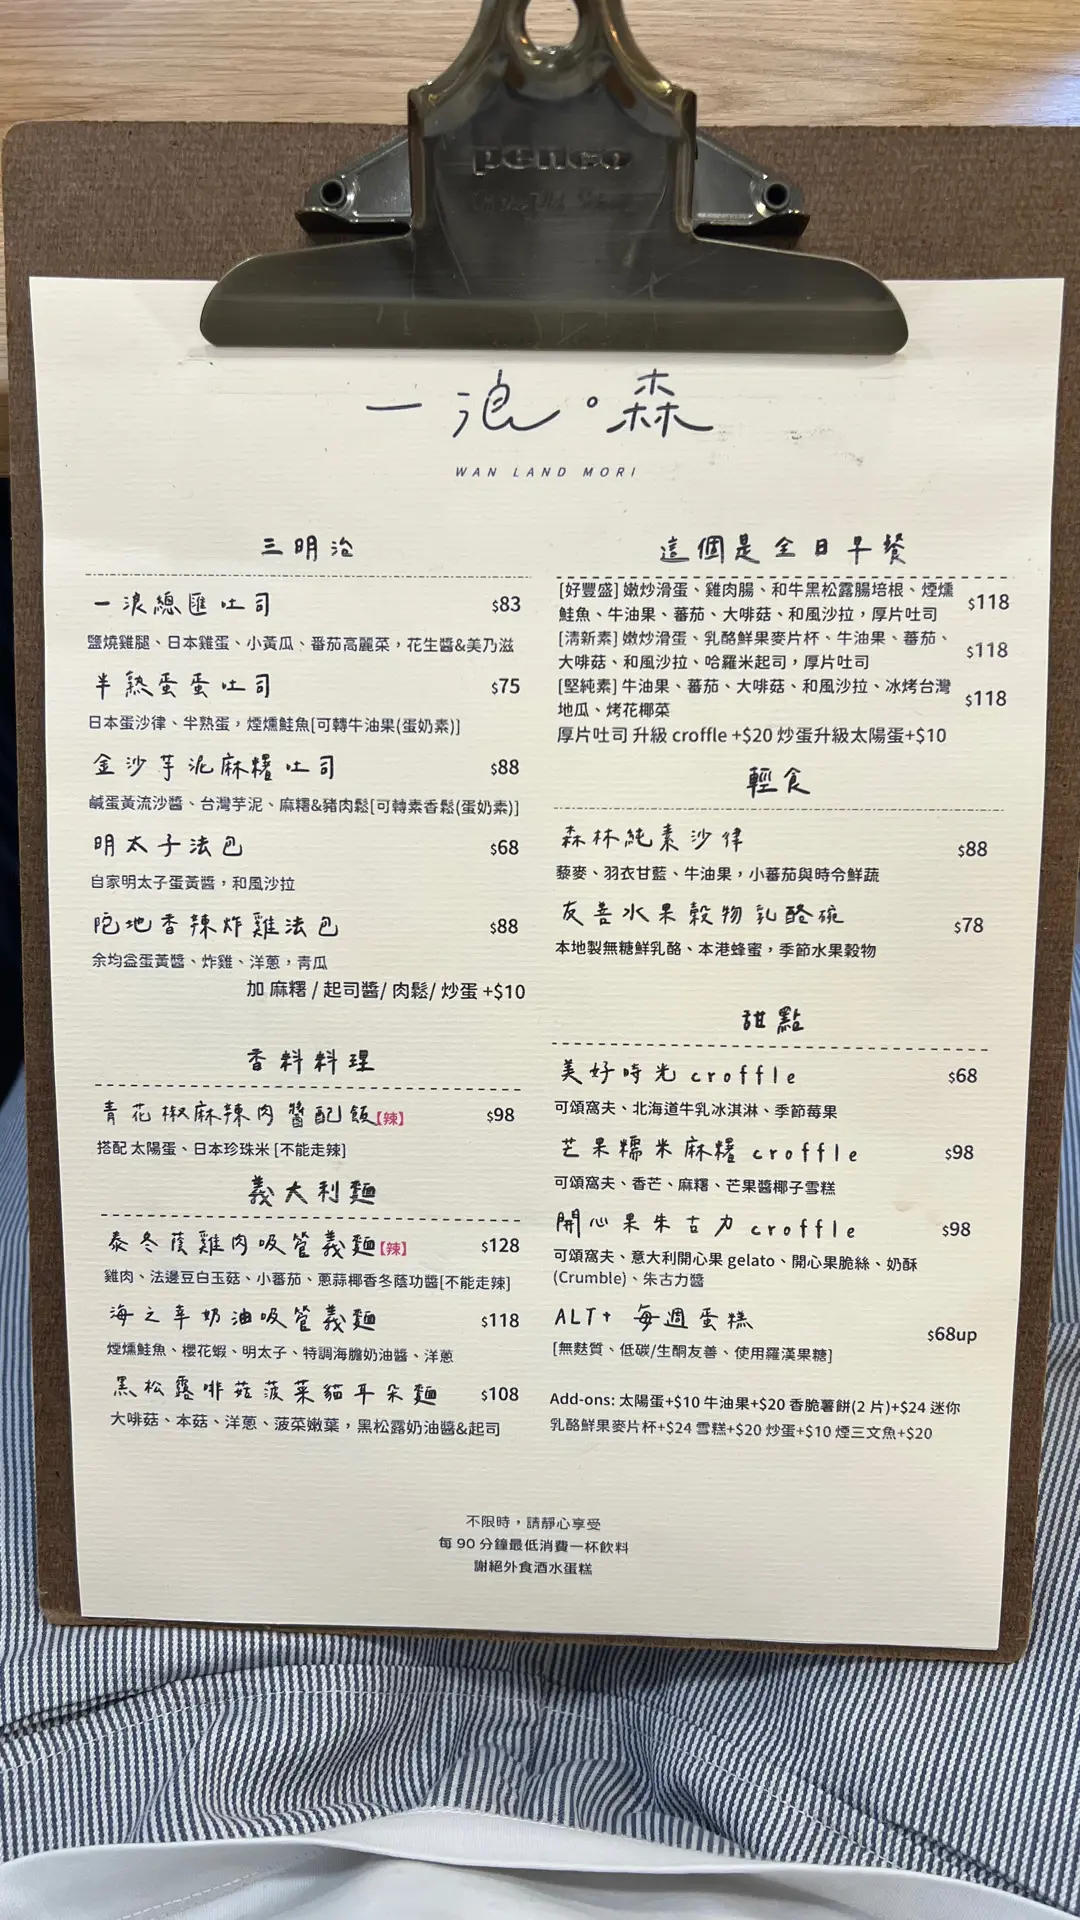 penco
一浪。森
WAN LAND MORI
三明治
一浪總匯吐司 $83
鹽燒雞腿、日本雞蛋、小黃瓜、番茄高麗菜，花生醬&美乃滋
半熟蛋蛋吐司 $75
日本蛋沙律、半熟蛋，煙燻鮭魚[可轉牛油果(蛋奶素)]
金沙芋泥麻糬吐司 $88
鹹蛋黃流沙醬、台灣芋泥、麻糬&豬肉鬆[可轉素香鬆(蛋奶素)]
明太子法包 $68
自家明太子蛋黃醬，和風沙拉
陀地香辣炸雞法包 $88
余均益蛋黃醬、炸雞、洋蔥，青瓜
加 麻糬 / 起司醬/ 肉鬆/ 炒蛋 +$10
香料料理
青花椒麻辣肉醬配飯【辣】 $98
搭配 太陽蛋、日本珍珠米 [不能走辣]
義大利麵
泰冬蔭雞肉吸管義麵【辣】 $128
雞肉、法邊豆白玉菇、小蕃茄、蔥蒜椰香冬蔭功醬[不能走辣]
海之幸奶油吸管義麵 $118
煙燻鮭魚、櫻花蝦、明太子、特調海膽奶油醬、洋蔥
黑松露啡菇菠菜貓耳朵麵 $108
大啡菇、本菇、洋蔥、菠菜嫩葉，黑松露奶油醬&起司
這個是全日早餐
[好豐盛] 嫩炒滑蛋、雞肉腸、和牛黑松露腸培根、煙燻
鮭魚、牛油果、蕃茄、大啡菇、和風沙拉，厚片吐司 $118
[清新素] 嫩炒滑蛋、乳酪鮮果麥片杯、牛油果、蕃茄、
大啡菇、和風沙拉、哈羅米起司，厚片吐司 $118
[堅純素] 牛油果、蕃茄、大啡菇、和風沙拉、冰烤台灣
地瓜、烤花椰菜 $118
厚片吐司 升級 croffle +$20 炒蛋升級太陽蛋+$10
輕食
森林純素沙律 $88
藜麥、羽衣甘藍、牛油果，小蕃茄與時令鮮蔬
友善水果穀物乳酪碗 $78
本地製無糖鮮乳酪、本港蜂蜜，季節水果穀物
甜點
美好時光 croffle $68
可頌窩夫、北海道牛乳冰淇淋、季節莓果
芒果糯米麻糬 croffle $98
可頌窩夫、香芒、麻糬、芒果醬椰子雪糕
開心果朱古力 croffle $98
可頌窩夫、意大利開心果 gelato、開心果脆絲、奶酥
(Crumble)、朱古力醬
ALT+ 每週蛋糕 $68up
[無麩質、低碳/生酮友善、使用羅漢果糖]
Add-ons: 太陽蛋+$10 牛油果+$20 香脆薯餅(2 片)+$24 迷你
乳酪鮮果麥片杯+$24 雪糕+$20 炒蛋+$10 煙三文魚+$20
不限時，請靜心享受
每 90 分鐘最低消費一杯飲料
謝絕外食酒水蛋糕